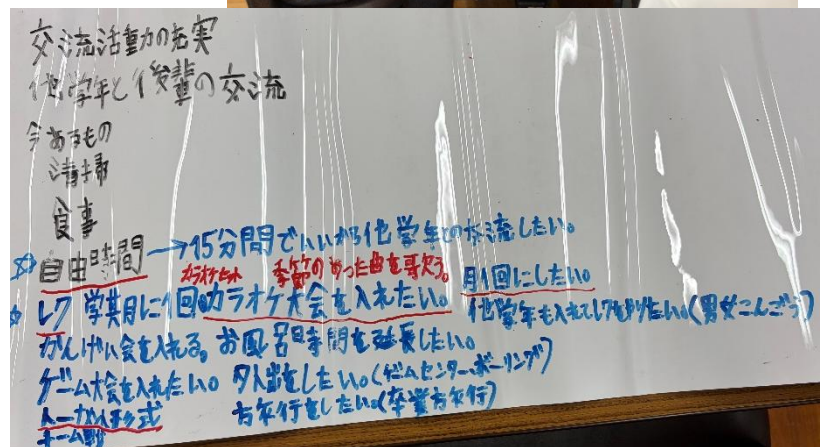 交流活動の充実
他学年と後輩の交流
今あるもの
清掃
食事
自由時間→15分間でいいから他学年との交流したい。
カラオケセット 季節のあった曲を歌う。 月1回にしたい
レク 学期に1回カラオケ大会を入れたい。 他学年も入れてレクをやりたい。(男女こんごう)
かんげい会を入れる。お風呂時間を延長したい。
ゲーム大会を入れたい。 外出をしたい。(ゲームセンター、ボーリング)
トーナメント形式 旅行をしたい(卒業旅行)
チーム戦